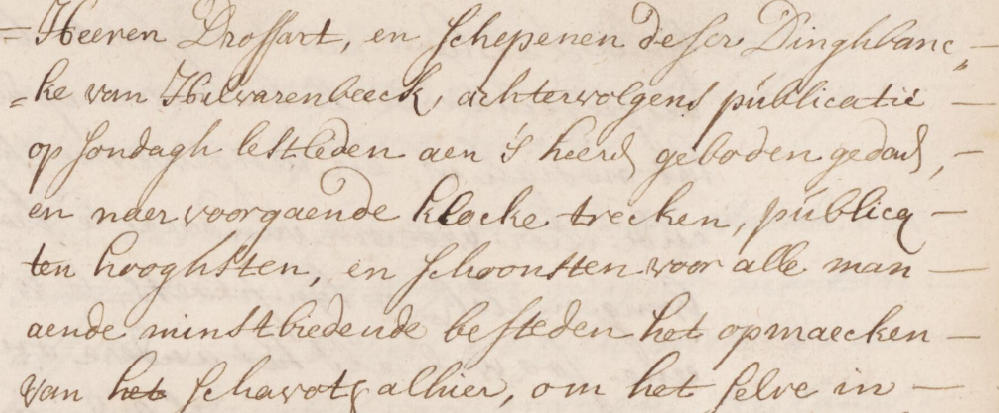 = Heeren Drossart, en schepenen deser Dinghbanc„ —
„ke van Hilvarenbeeck, achtervolgens publicatie —
op sondagh lestleden aen 's heers geboden gedaen, —
en naer voorgaende klocke trecken, publicq —
ten hooghsten, en schoonsten voor alle man —
aende minstbiedende besteden het opmaecken —
van het schavott alhier, om het selve in —